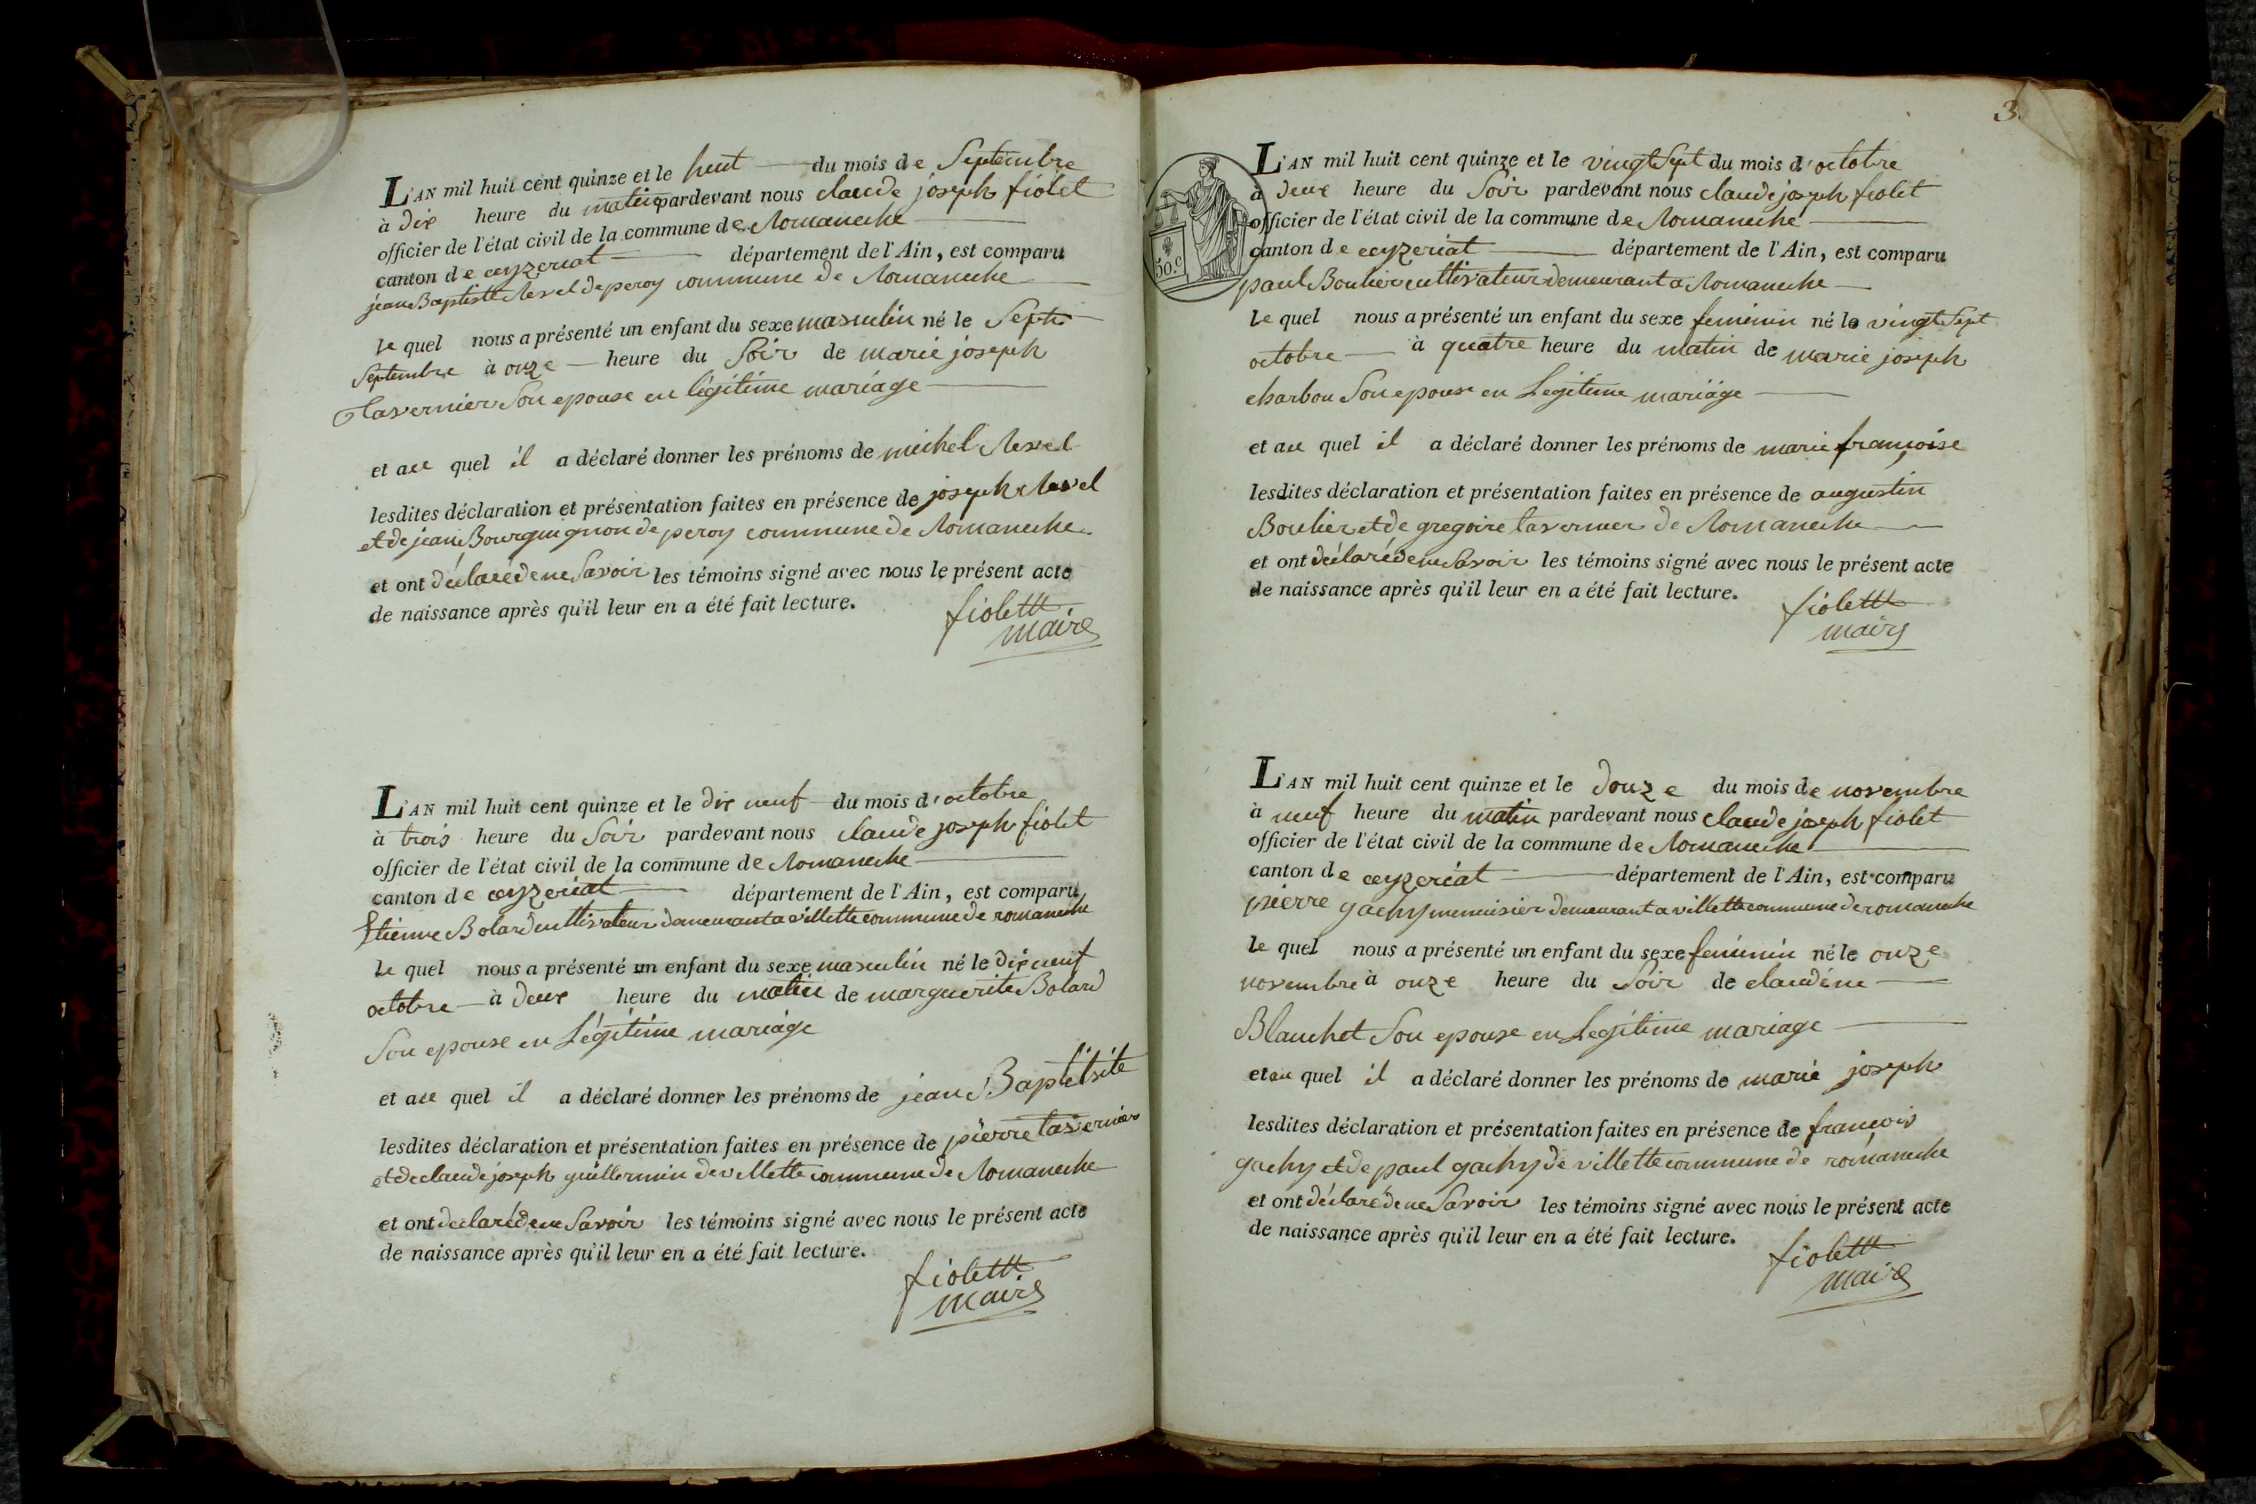 L'AN mil huit cent quinze et le huit du mois de Septembre
à dix heure du matin pardevant nous claude joseph fiolet
officier de l'état civil de la commune de Romaneche
canton de ceyzeriat département de l'Ain, est comparu
jean Baptiste Revel de peroy commune de Romaneche
le quel nous a présenté un enfant du sexe masculin né le Sept
Septembre à onze heure du Soir de marie joseph
Tavernier Son epouse en légitime mariage
et au quel il a déclaré donner les prénoms de michel Revel
lesdites déclaration et présentation faites en présence de joseph Revel
et de jean Bourguignon de peroy commune de Romaneche
et ont déclaré de ne Savoir les témoins signé avec nous le présent acte
de naissance après qu'il leur en a été fait lecture.
fiolettt
maire
L'AN mil huit cent quinze et le dix neuf du mois d'octobre
à trois heure du Soir pardevant nous claude joseph fiolet
officier de l'état civil de la commune de Romaneche
canton de ceyzeriat département de l'Ain, est comparu
Etienne Bolard cultivateur demeurant a villette commune de romaneche
le quel nous a présenté un enfant du sexe masculin né le dix neuf
octobre à deux heure du matin de marguerite Bolard
Son epouse en Légitime mariage
et au quel il a déclaré donner les prénoms de jean Baptitsite
lesdites déclaration et présentation faites en présence de pierre tavernier
et de claude joseph guillermin de villette commune de Romaneche
et ont declaré de ne Savoir les témoins signé avec nous le présent acte
de naissance après qu'il leur en a été fait lecture.
fiolettt
maire
3.
50.c
L'AN mil huit cent quinze et le vingt Sept du mois d'octobre
à deux heure du Soir pardevant nous claude joseph fiolet
officier de l'état civil de la commune de Romaneche
canton de ceyzeriat département de l'Ain, est comparu
paul Boulier cultivateur demeurant a Romaneche
le quel nous a présenté un enfant du sexe feminin né le vingt Sept
octobre à quatre heure du matin de marie joseph
charbon Son epouse en Legitime mariage
et au quel il a déclaré donner les prénoms de marie françoise
lesdites déclaration et présentation faites en présence de augustin
Boulier et de gregoire tavernier de Romaneche
et ont déclaré de ne Savoir les témoins signé avec nous le présent acte
de naissance après qu'il leur en a été fait lecture.
fiolettt
maire
L'AN mil huit cent quinze et le douze du mois de novembre
à neuf heure du matin pardevant nous claude joseph fiolet
officier de l'état civil de la commune de Romaneche
canton de ceyzeriat département de l'Ain, est comparu
pierre gachy menuisier demeurant a villette commune de romaneche
le quel nous a présenté un enfant du sexe feminin né le onze
novembre à onze heure du Soir de claudine
Blanchet Son epouse en Legitime mariage
et au quel il a déclaré donner les prénoms de marie joseph
lesdites déclaration et présentation faites en présence de françois
gachy et de paul gachy de villette commune de romaneche
et ont déclaré de ne Savoir les témoins signé avec nous le présent acte
de naissance après qu'il leur en a été fait lecture.
fiolettt
maire